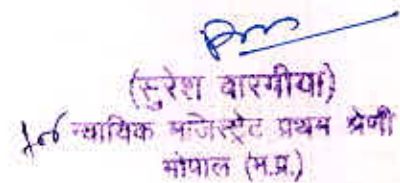 (सुरेश वारगीया)
न्यायिक मजिस्ट्रेट प्रथम श्रेणी
भोपाल (म.प्र.)